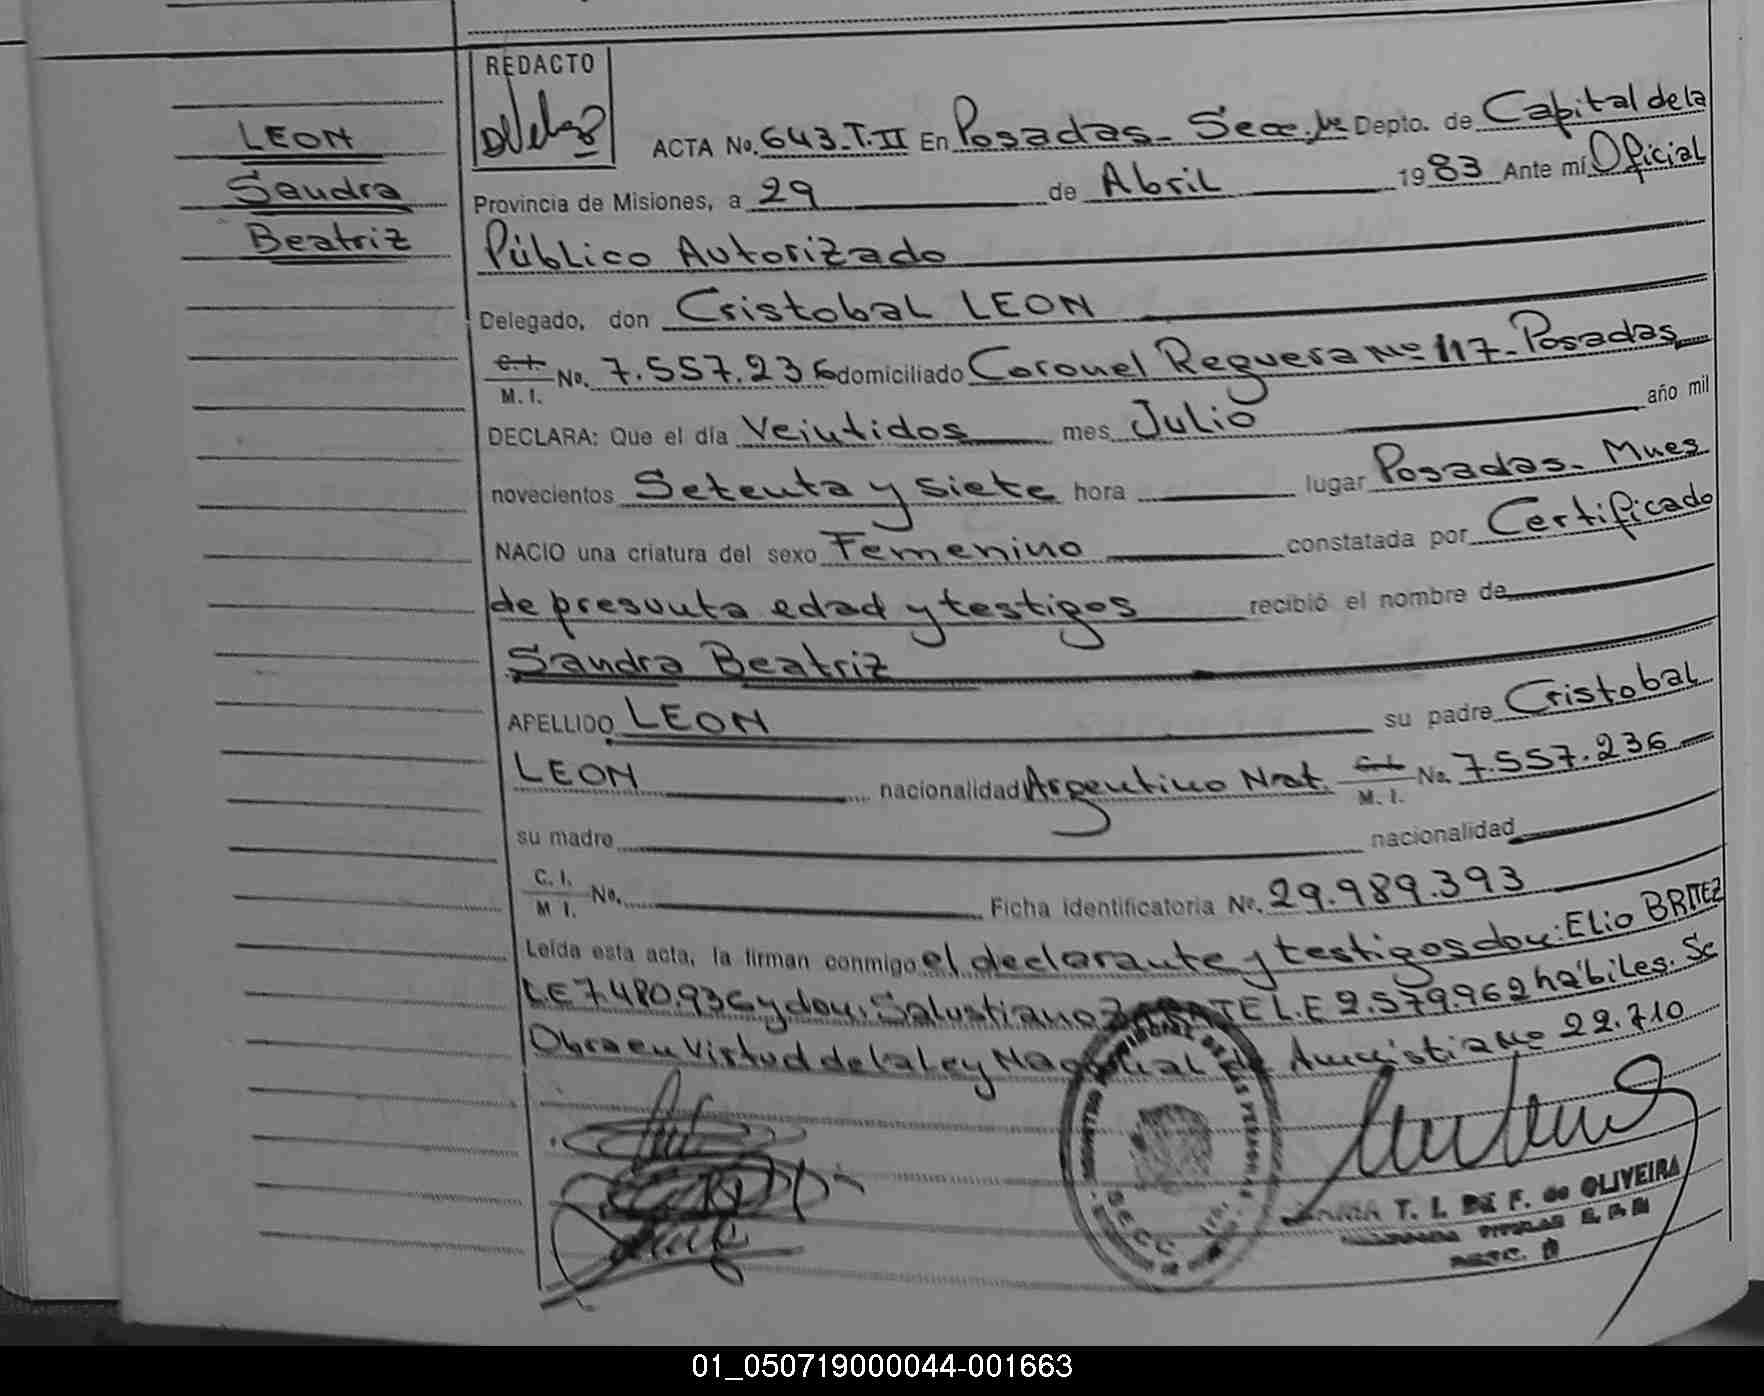 REDACTO
LEON
Sandra
Beatriz
ACTA No. 643-T.II En Posadas- Secc. 1ra Depto. de Capital de la
Provincia de Misiones, a 29 de Abril 1983 Ante mí Oficial
Público Autorizado
Delegado, don Cristobal LEON
C.I. M.I. No. 7.557.236 domiciliado Coronel Reguera Nº 117- Posadas
DECLARA: Que el día Veintidos mes Julio año mil
novecientos Setenta y siete hora lugar Posadas- Mnes
NACIO una criatura del sexo Femenino constatada por Certificado
de presunta edad y testigos recibió el nombre de
Sandra Beatriz
APELLIDO LEON su padre Cristobal
LEON nacionalidad Argentino Nat. C.I. M.I. No. 7.557.236
su madre nacionalidad
C.I. M I. No. Ficha identificatoria Nº. 29.989.393
Leída esta acta, la firman conmigo el declarante y testigos don: Elio BRITEZ
L.E 7.480.936 y don: Salustiano L.E 2.579.962 hábiles. Se
Obra en Virtud de la ley Nacional de Amnistia Nº 22.710
T. I. DE F. de OLIVEIRA
01_050719000044-001663